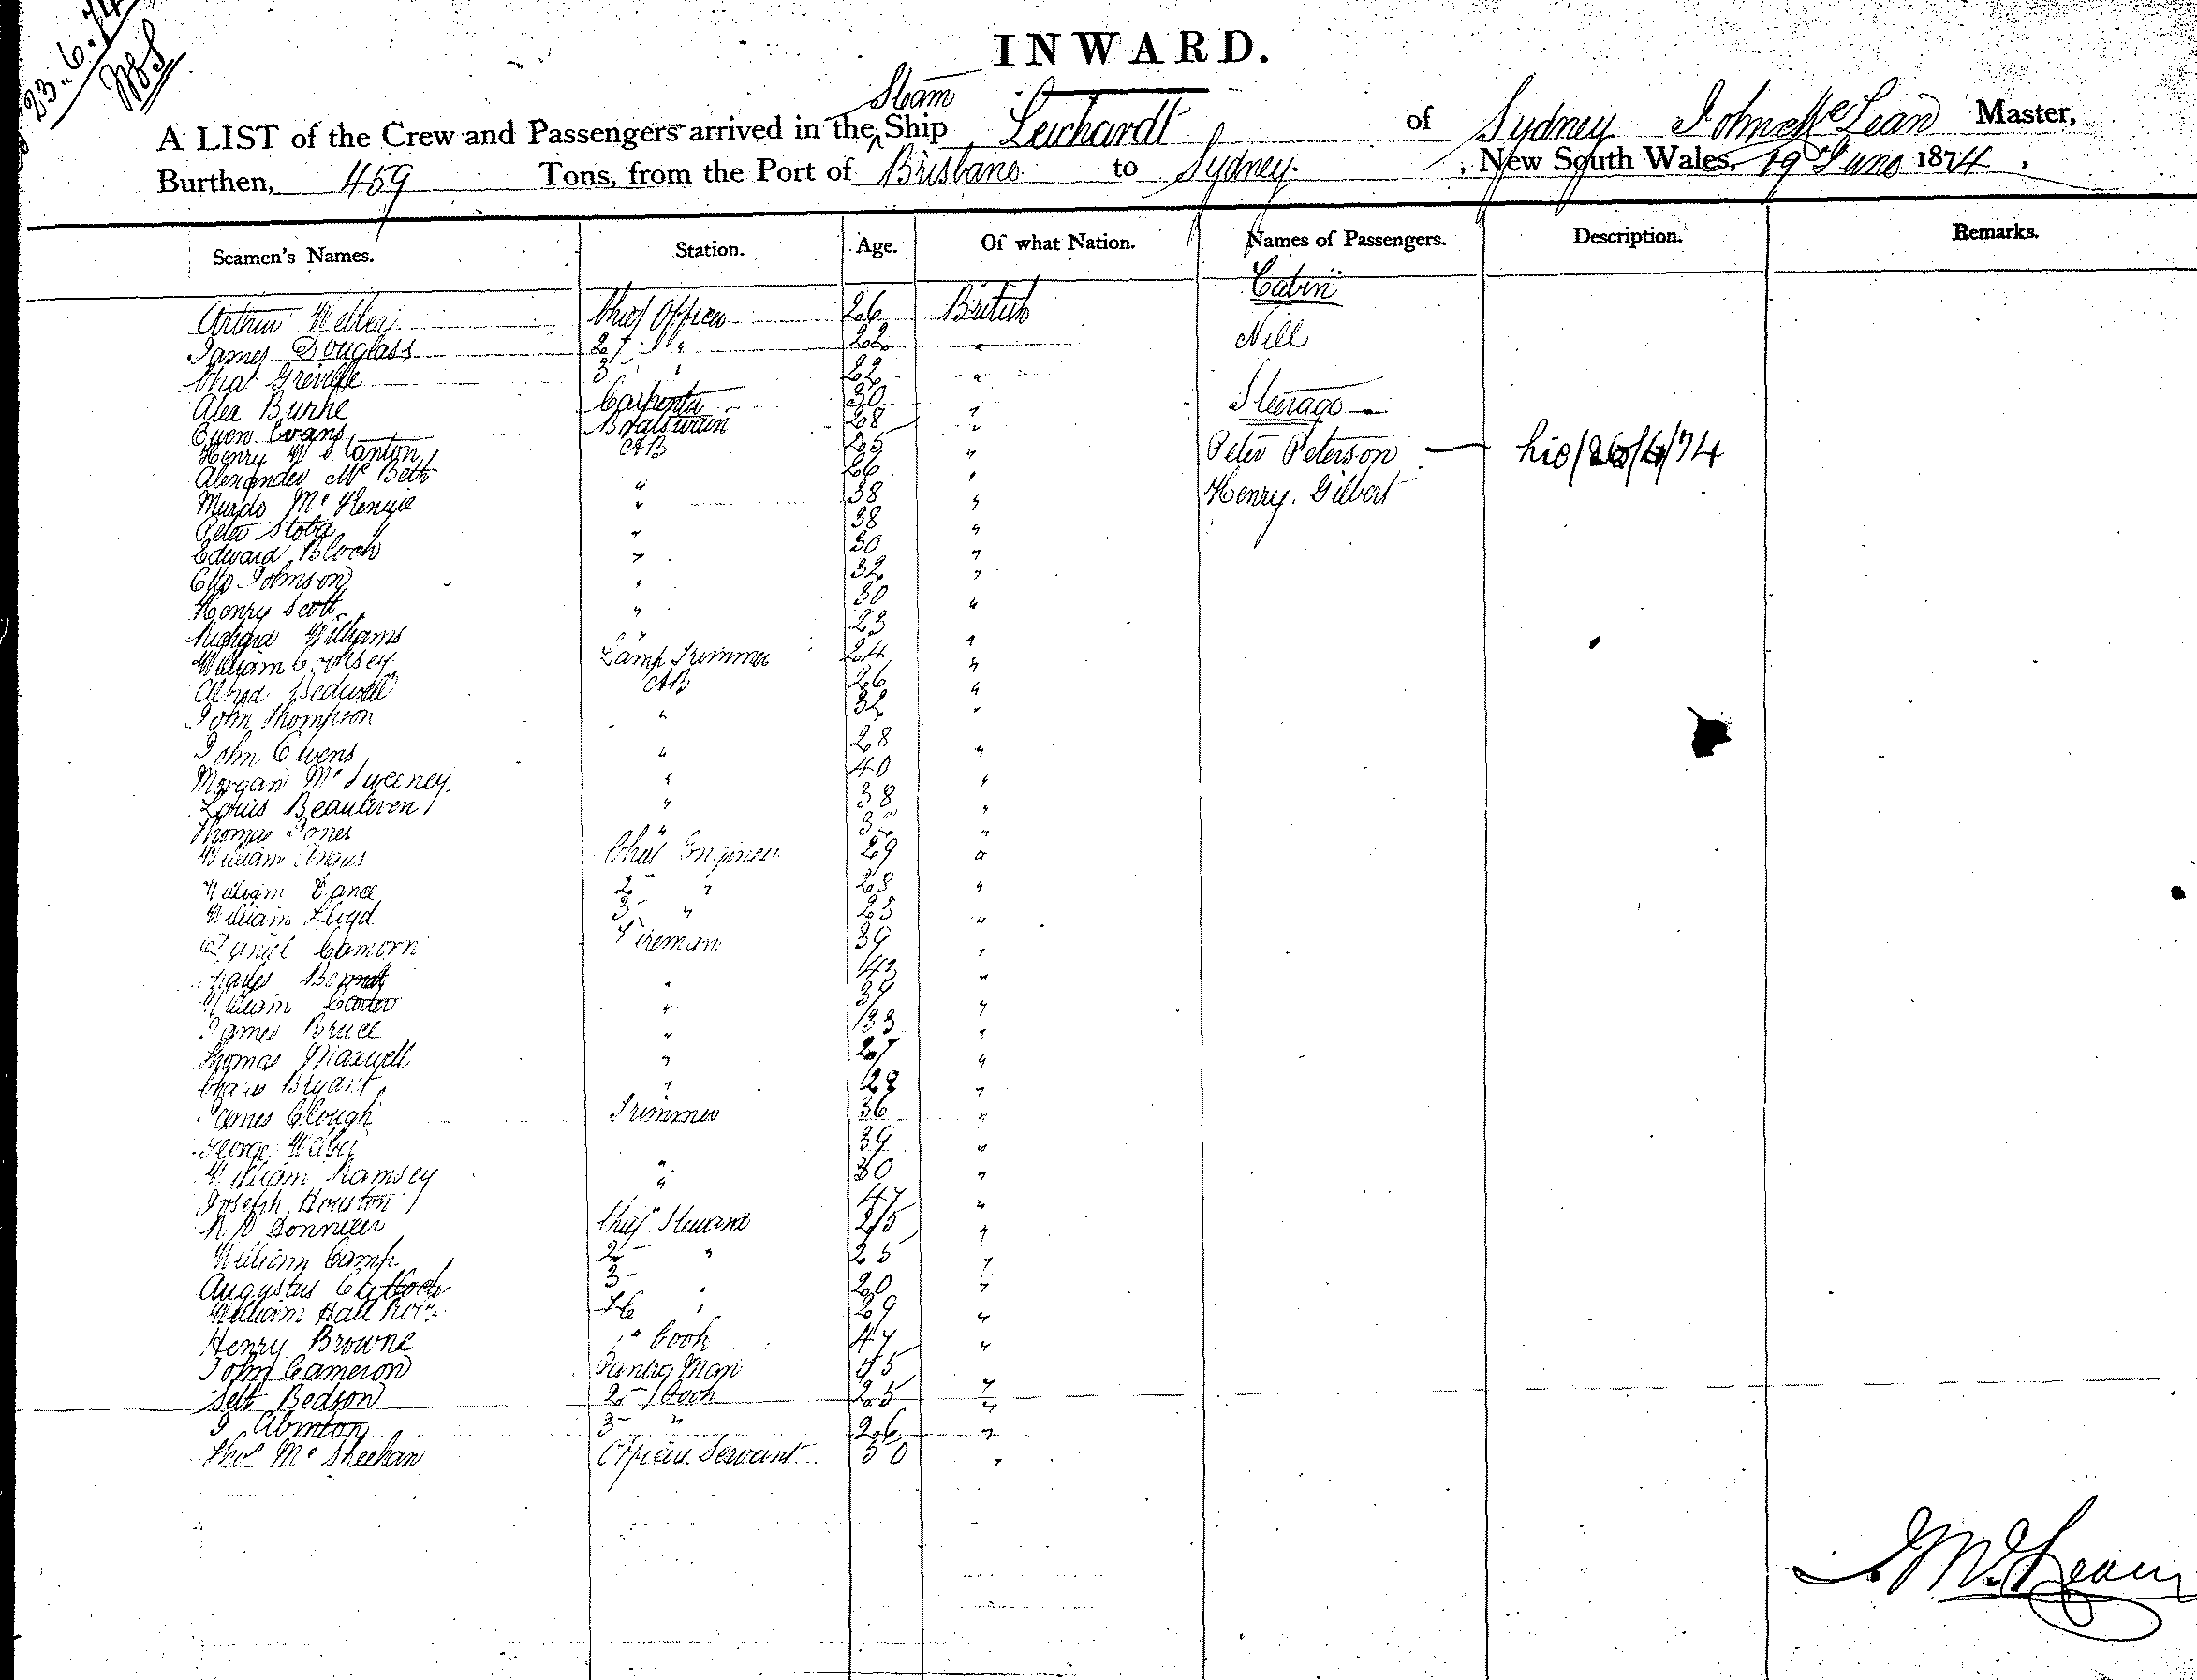 23.6.74
INWARD.
Steam
A LIST of the Crew and Passengers arrived in the Ship Leichardt of Sydney John McLean Master,
Burthen, 459 Tons, from the Port of Brisbane to Sydney. , New South Wales, 19 June 1874 ,
Seamen's Names. Station. Age. Of what Nation. Names of Passengers. Description. Remarks.
Cabin
Arthur Weller Chief Officer 26 British
James Douglass 2nd " 22 " Nill
Chas Greville 3 " 22 "
Alex Burke Carpenter 30 " Steerage
Owen Evans Boatswain 28 "
Henry W Stanton AB 25 " Peter Peterson — 26/6/74
Alexander McBeth " 26 "
Murdo McKenzie " 38 " Henry. Gilbert
Peter " 38 "
Edward Bloch " 30 "
Otto Johnson " 32 "
Henry Scott " 30 "
Richard Williams " 23 "
William Lamp Trimmer 24 "
Alfred Bedwell AB 26 "
John Thompson " 32 "
John Owens " 28 "
Morgan McSweeney " 40 "
Louis " 38 "
Thomas Jones " "
William Angus Chief Engineer 29 "
William Dance 2 " 28 "
William Lloyd 3 " 23 "
Daniel Fireman 39 "
Charles " 43 "
William " "
James Bruce " 33 "
Thomas Maxwell " 27 "
Charles Bryant " 28 "
James Clough Trimmer 36 "
George 39 "
William Ramsey " 30 "
Joseph Houston " 47 "
Chief Steward 25 "
William Camp 2 " 25 "
Augustus 3 20 "
William Hall " 29 "
Henry Browne Cook 47 "
John Cameron Pantry Man 45
Seth Bedson 2 Cook 25 "
J Abinton 3 " 26 "
Thos McSheehan Officers Servant 50 "
J McLean